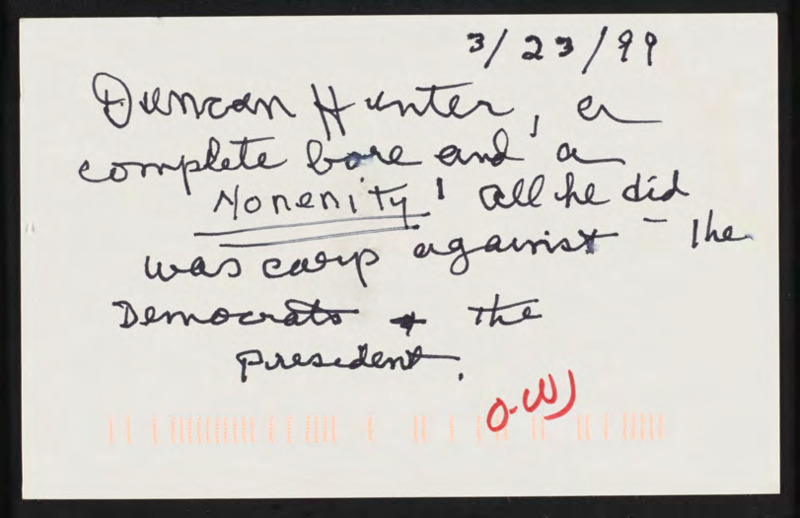 3/23/99
Duncan Hunter, a
complete bore and a
Nonenity! all he did
was carp against - the
Democrats + the
president.
O-WJ